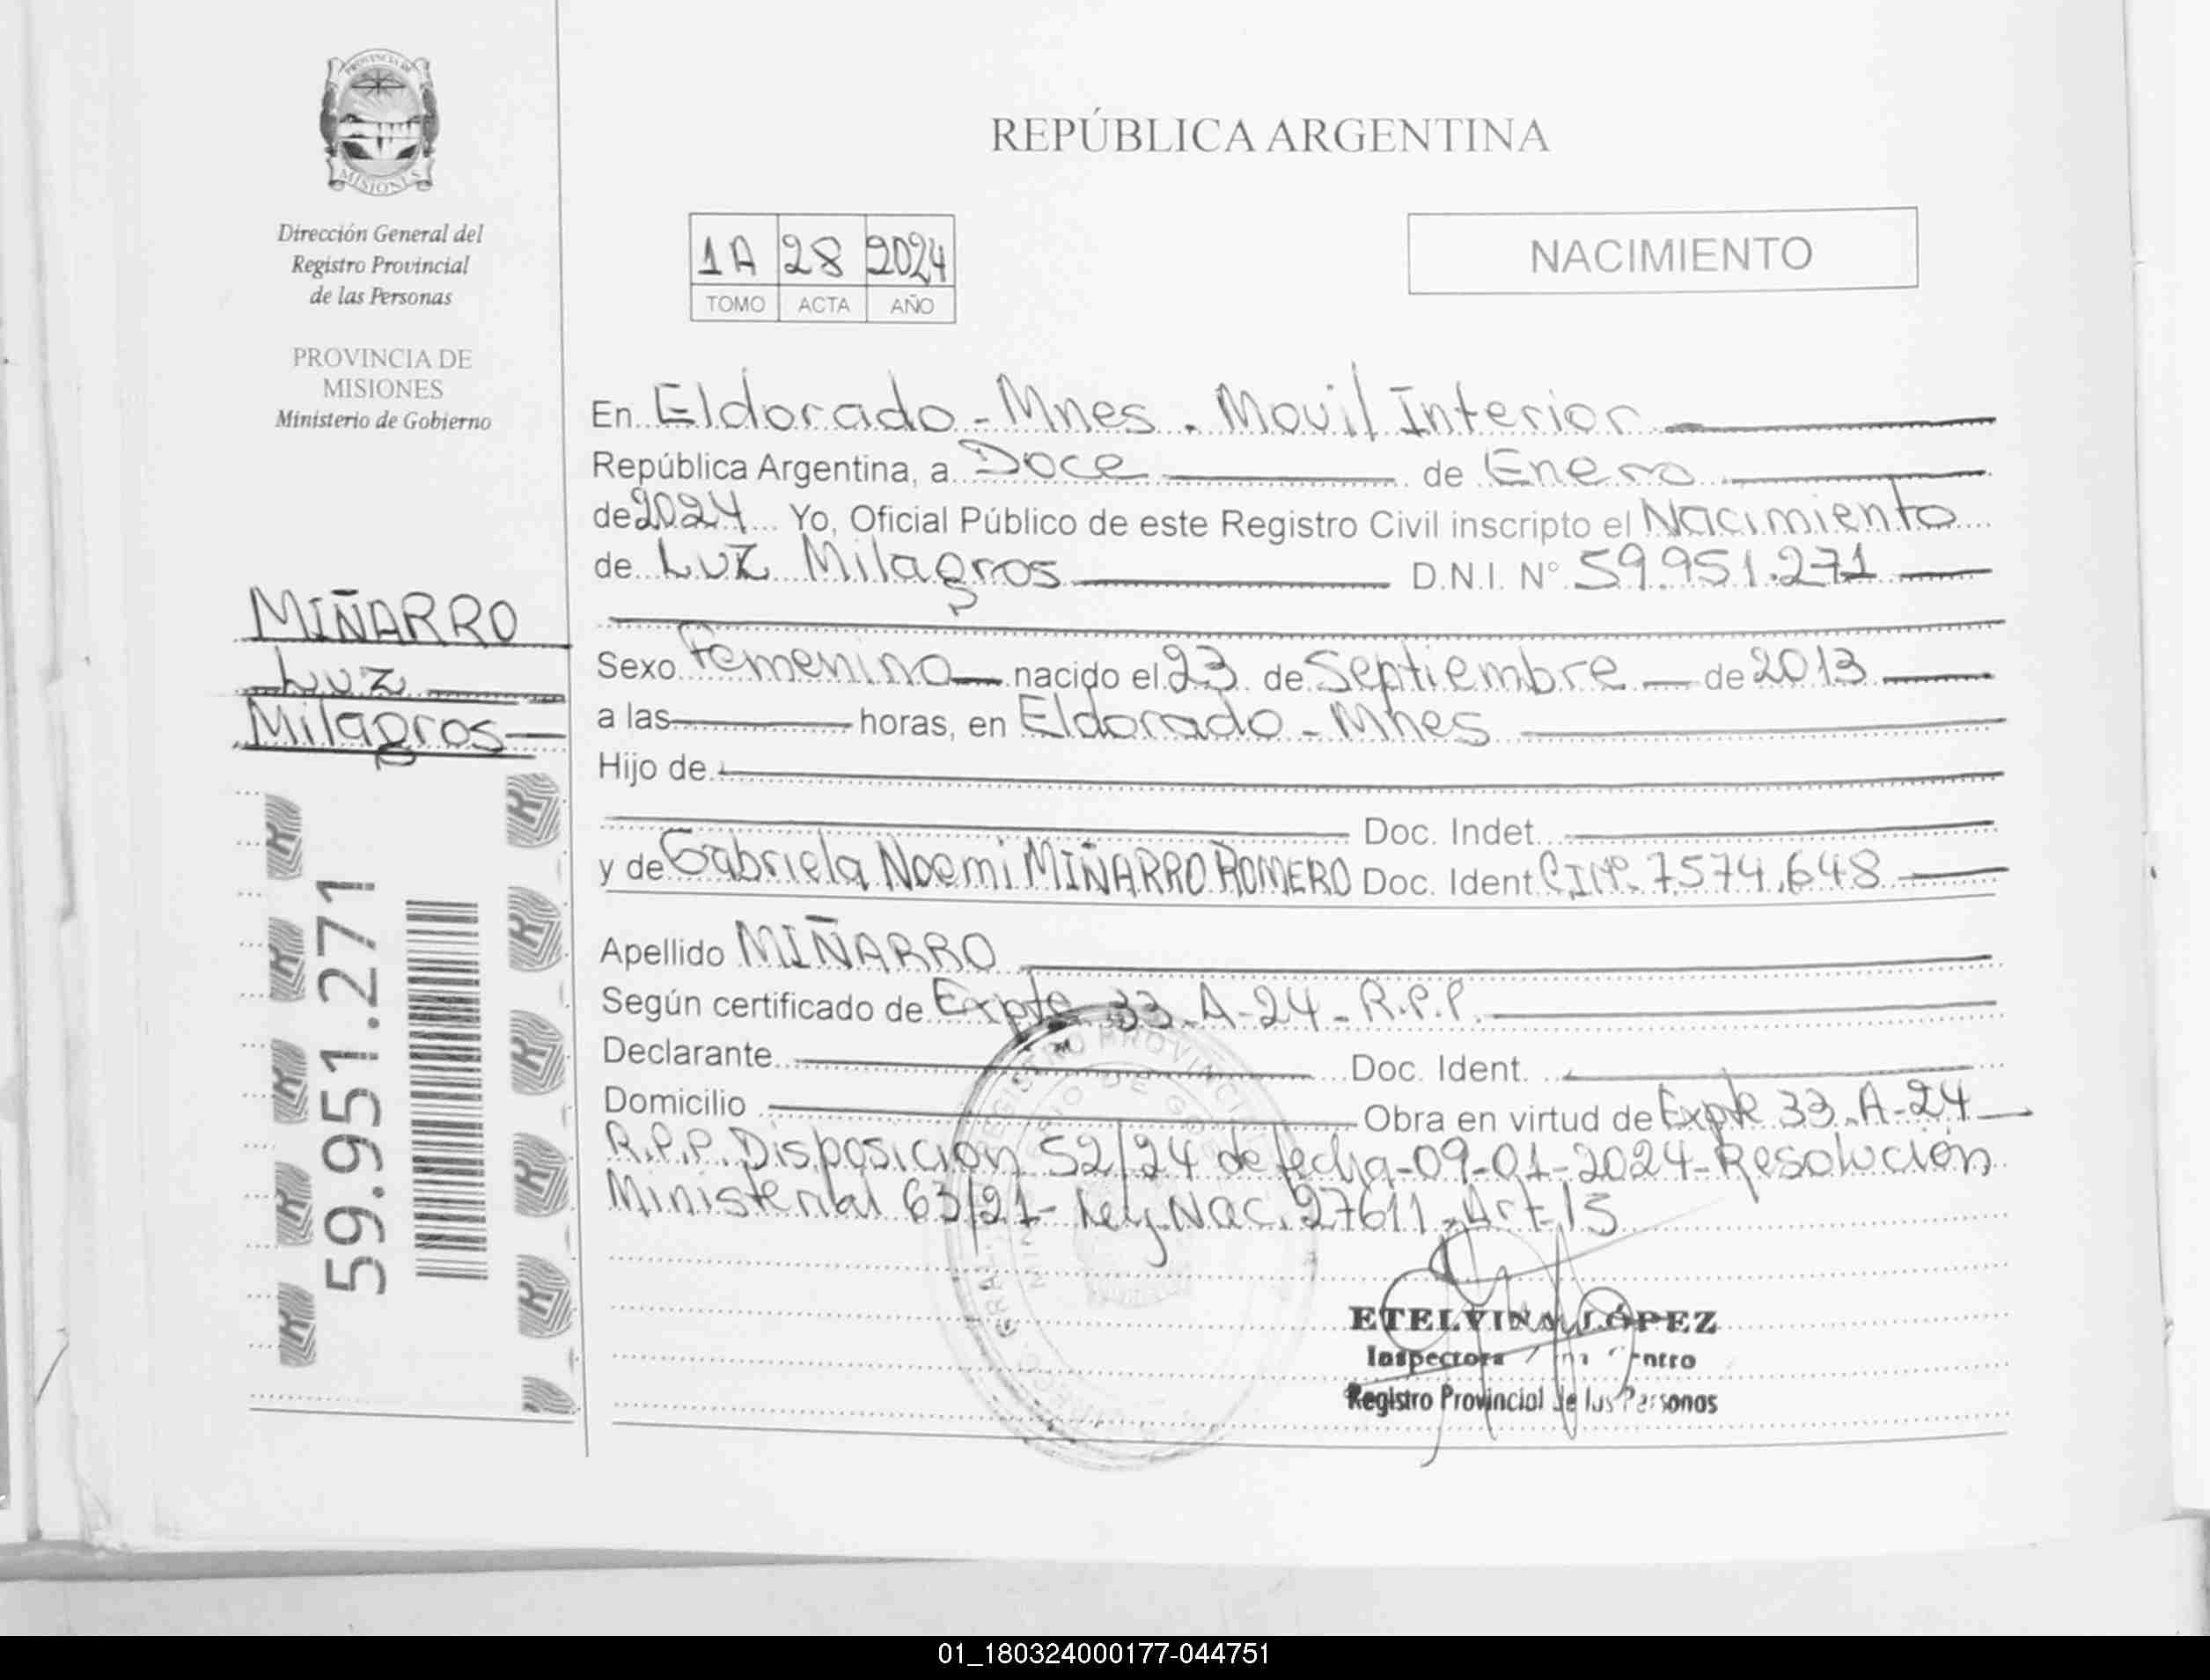 PROVINCIA DE
MISIONES
Dirección General del
Registro Provincial
de las Personas
PROVINCIA DE
MISIONES
Ministerio de Gobierno
MIÑARRO
Luz
Milagros
59.951.271
REPÚBLICA ARGENTINA
1A 28 2024
TOMO ACTA AÑO
NACIMIENTO
En Eldorado - Mnes. Movil Interior
República Argentina, a Doce de Enero
de 2024 Yo, Oficial Público de este Registro Civil inscripto el Nacimiento
de Luz Milagros D.N.I. N° 59.951.271
Sexo Femenino nacido el 23 de Septiembre de 2013
a las horas, en Eldorado - Mnes
Hijo de
Doc. Indet.
y de Gabriela Noemi MIÑARRO ROMERO Doc. Ident. CIN°. 7574.648
Apellido MIÑARRO
Según certificado de Expte 33-A-24-R.P.P.
Declarante Doc. Ident.
Domicilio Obra en virtud de Expte 33-A-24
R.P.P. Disposición 52/24 de fecha-09-01-2024-Resolución
Ministerial 63/21- Ley Nac. 27611-Art-15
ETELVINA LÓPEZ
Inspectora
Registro Provincial de las Personas
01_180324000177-044751